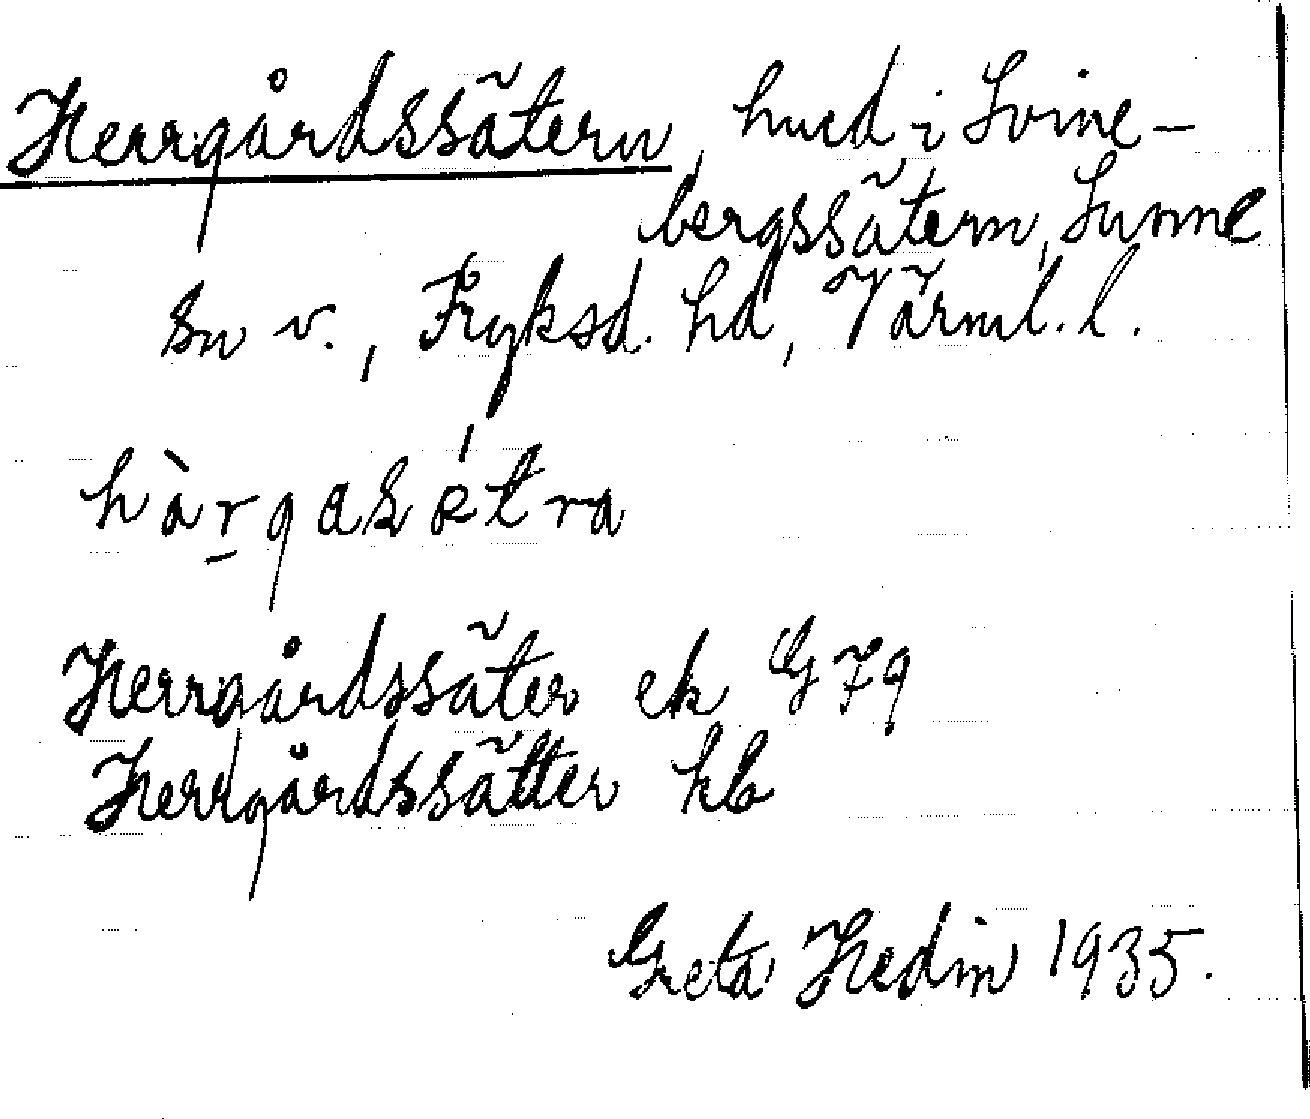 Herrgårdssätern, hmd i Svine-
bergssätern, Sunne
sn v., Fryksd. hd, Värml. l.
hàr̲gasétra
Herrgårdssäter ek G 79
Herrgårdssätter kb
Greta Hedin 1935.